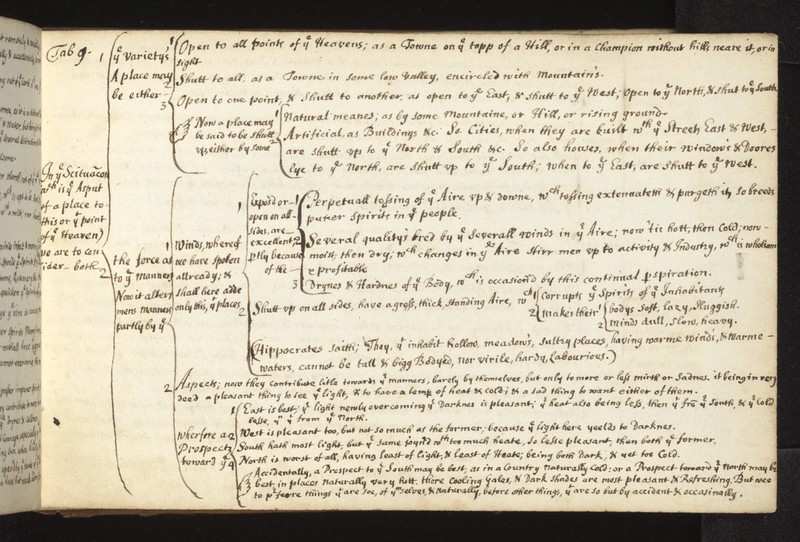 Tab 9.
In yͤ Scituacõn
wᶜʰ is yͤ Asput
of a place to
this or yͭ point
of yͤ Heaven)
we are to con
sider - both
1 yͤ varietys
A place may
be either -
1 Open to all points of yͤ Heavens; as a Towne on yͤ topp of a Hill, or in a Champion without hills neare it, or in
sight.
2 Shutt to all. as a Towne in some low valley, encircled with Mountain's.
3 Open to one point, & shutt to another, as open to yͤ East, & shutt to yͤ West; open to yͤ North, & shut to yͤ South.
Now a place may
be said to be shutt
up either by some
1 Natural meanes; as by some Mountaine, or Hill, or rising ground.
2 Artificial, as Buildings &c. So Cities, when they are built wᵗʰ yͤ Streets East & West,
are shutt up to yͤ North & South &c. So also houses, when their windows & Doores
lye to yͤ North, are shutt up to yͤ South; when to yͤ East, are shutt to yͤ West.
2 the force as
to yͤ manners
Now it alters
mens manners
partly by yͤ
1 Winds, whereof
we have spoken
allready; &
shall here adde
only this, yͤ places
1 Exposd or
open on all
sides, are
excellent,
ptly because
of the
1 Perpetuall tossing of yͤ Aire up & downe, wᶜʰ tossing extennateth & purgeth it, so breeds
purer spirits in yͤ people.
2 Several quality's bred by yͤ severall winds in yͤ Aire; now 'tis hott, then Cold; now
moist, then dry; wᶜʰ changes in yͤ Aire stirr men up to activity & Industry, wᶜʰ is wholsom
& profitable
3 Drynes & Hardnes of yͤ Body, wᶜʰ is occasion'd by this continual pspiration.
2 Shutt up on all sides, have a gross, thick, standing Aire, wᶜʰ
1 Corrupts yͤ Spirits of yͤ Inhabitants
2 makes their
1 bodys soft, lazy, sluggish.
2 minds dull, slow, heavy.
(Hippocrates saith; They, yͭ inhabit hollow, meadows, sultry places, having warme winds, & warme
waters, cannot be tall & bigg Bodyed, nor virile, hardy, Labourious.)
2 Aspects; now they contribute litle towards yͤ manners, barely by themselves, but only to more or less mirth or Sadnes. it being in very
deed a pleasant thing to see yͤ light, & to have a temp of heat & cold; & a sad thing to want either of them.
wherefore a
Prospect
toward yͤ
1 East is best; yͤ light newly overcoming yͤ Darknes is pleasant; yͤ heat also being less, then yͭ frõ yͤ South, & yͤ Cold
lesse, yⁿ yͭ from yͤ North.
2 West is pleasant too, but not so much as the former; because yͤ light here yeelds to Darknes.
3 South hath most light, but yͤ same joyn'd wᵗʰ too much heate, so lesse pleasant, then both yͤ former.
4 North is worst of all, having least of Light, & least of Heate; being both dark, & yet too Cold.
Accidentally, a Prospect to yͤ South may be best, as in a Country naturally Cold: or a Prospect toward yͤ North may be
best, in places naturally very hott. there Cooling Gales, & Dark shades are most pleasant & Refreshing. But wee
to pferre things yͭ are soe, of yᵐselves, & naturally, before other things, yͭ are so but by accident & occasionally.